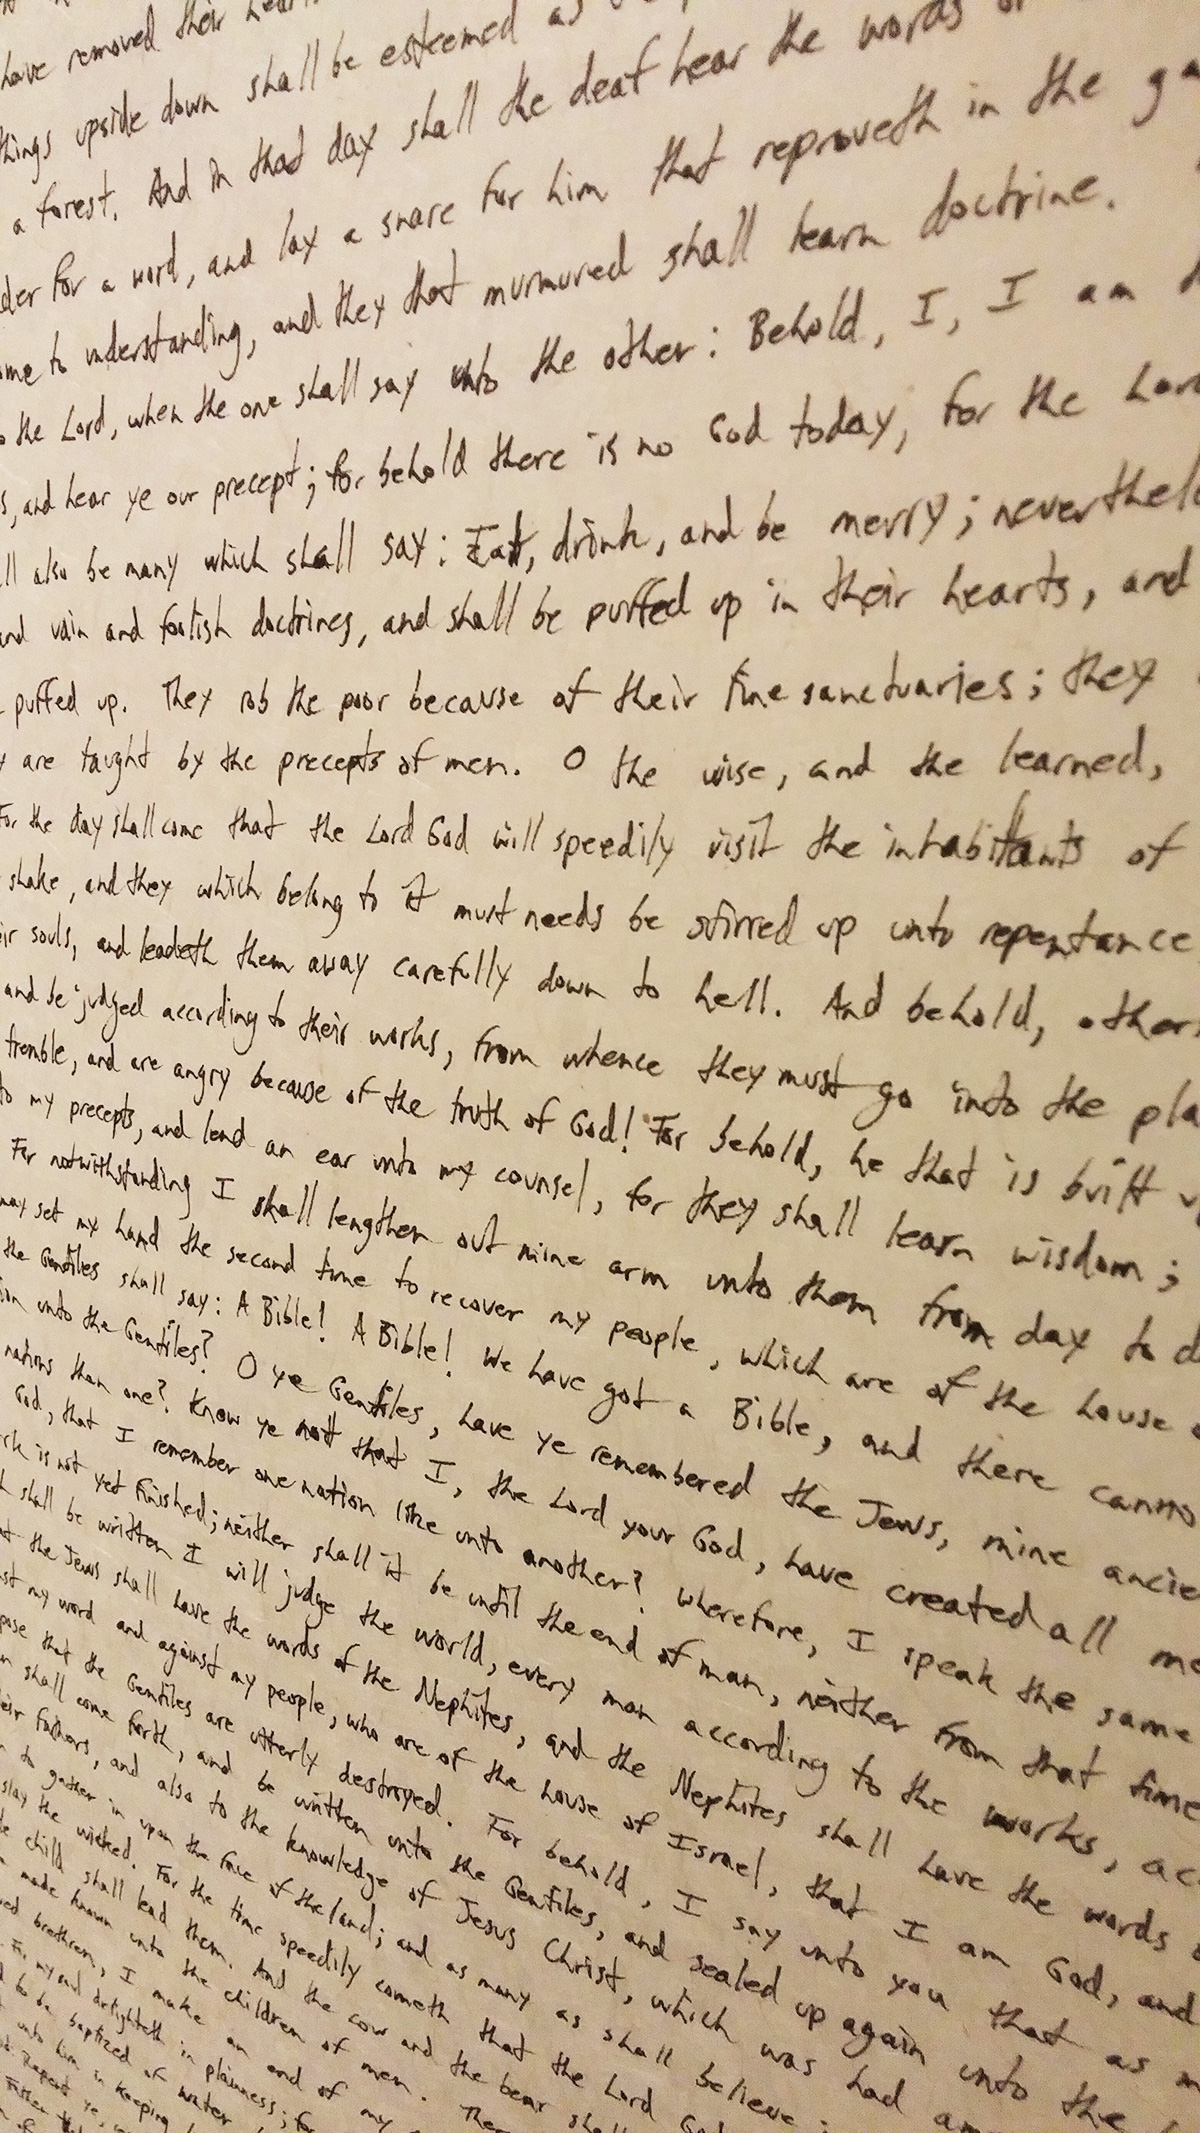 have removed their hear
things upside down shall be esteemed as
a forest. And in that day shall the deaf hear the words o
der for a word, and lay a snare for him that reproveth in the ga
ome to understanding, and they that murmured shall learn doctrine.
o the Lord, when the one shall say unto the other: Behold, I, I am
s, and hear ye our precept; for behold there is no God today, for the Lor
ll also be many which shall say: Eat, drink, and be merry; neverthele
and vain and foolish doctrines, and shall be puffed up in their hearts, and
puffed up. They rob the poor because of their fine sanctuaries; they
y are taught by the precepts of men. O the wise, and the learned,
For the day shall come that the Lord God will speedily visit the inhabitants of
shake, and they which belong to it must needs be stirred up unto repentance
ir souls, and leadeth them away carefully down to hell. And behold, other
and be judged according to their works, from whence they must go into the pla
tremble, and are angry because of the truth of God! For behold, he that is built u
to my precepts, and lend an ear unto my counsel, for they shall learn wisdom;
For notwithstanding I shall lengthen out mine arm unto them from day to d
may set my hand the second time to recover my people, which are of the house o
the Gentiles shall say: A Bible! A Bible! We have got a Bible, and there canno
ion unto the Gentiles? O ye Gentiles, have ye remembered the Jews, mine ancie
nations than one? Know ye not that I, the Lord your God, have created all me
God, that I remember one nation like unto another? Wherefore, I speak the same
rk is not yet finished; neither shall it be until the end of man, neither from that time
h shall be written I will judge the world, every man according to the works, acc
at the Jews shall have the words of the Nephites, and the Nephites shall have the words o
st my word and against my people, who are of the house of Israel, that I am God, and
pose that the Gentiles are utterly destroyed. For behold, I say unto you that as m
n shall come forth, and be written unto the Gentiles, and sealed up again unto the
eir fathers, and also to the knowledge of Jesus Christ, which was had am
to gather in upon the face of the land; and as many as shall believe
slay the wicked. For the time speedily cometh that the Lord God
le child shall lead them. And the cow and the bear shall
made known unto the children of men.
ved brethren, I make an end of my
For my soul delighteth in plainness; for
to be baptized of water
unto him in keeping
Repent ye,
Father